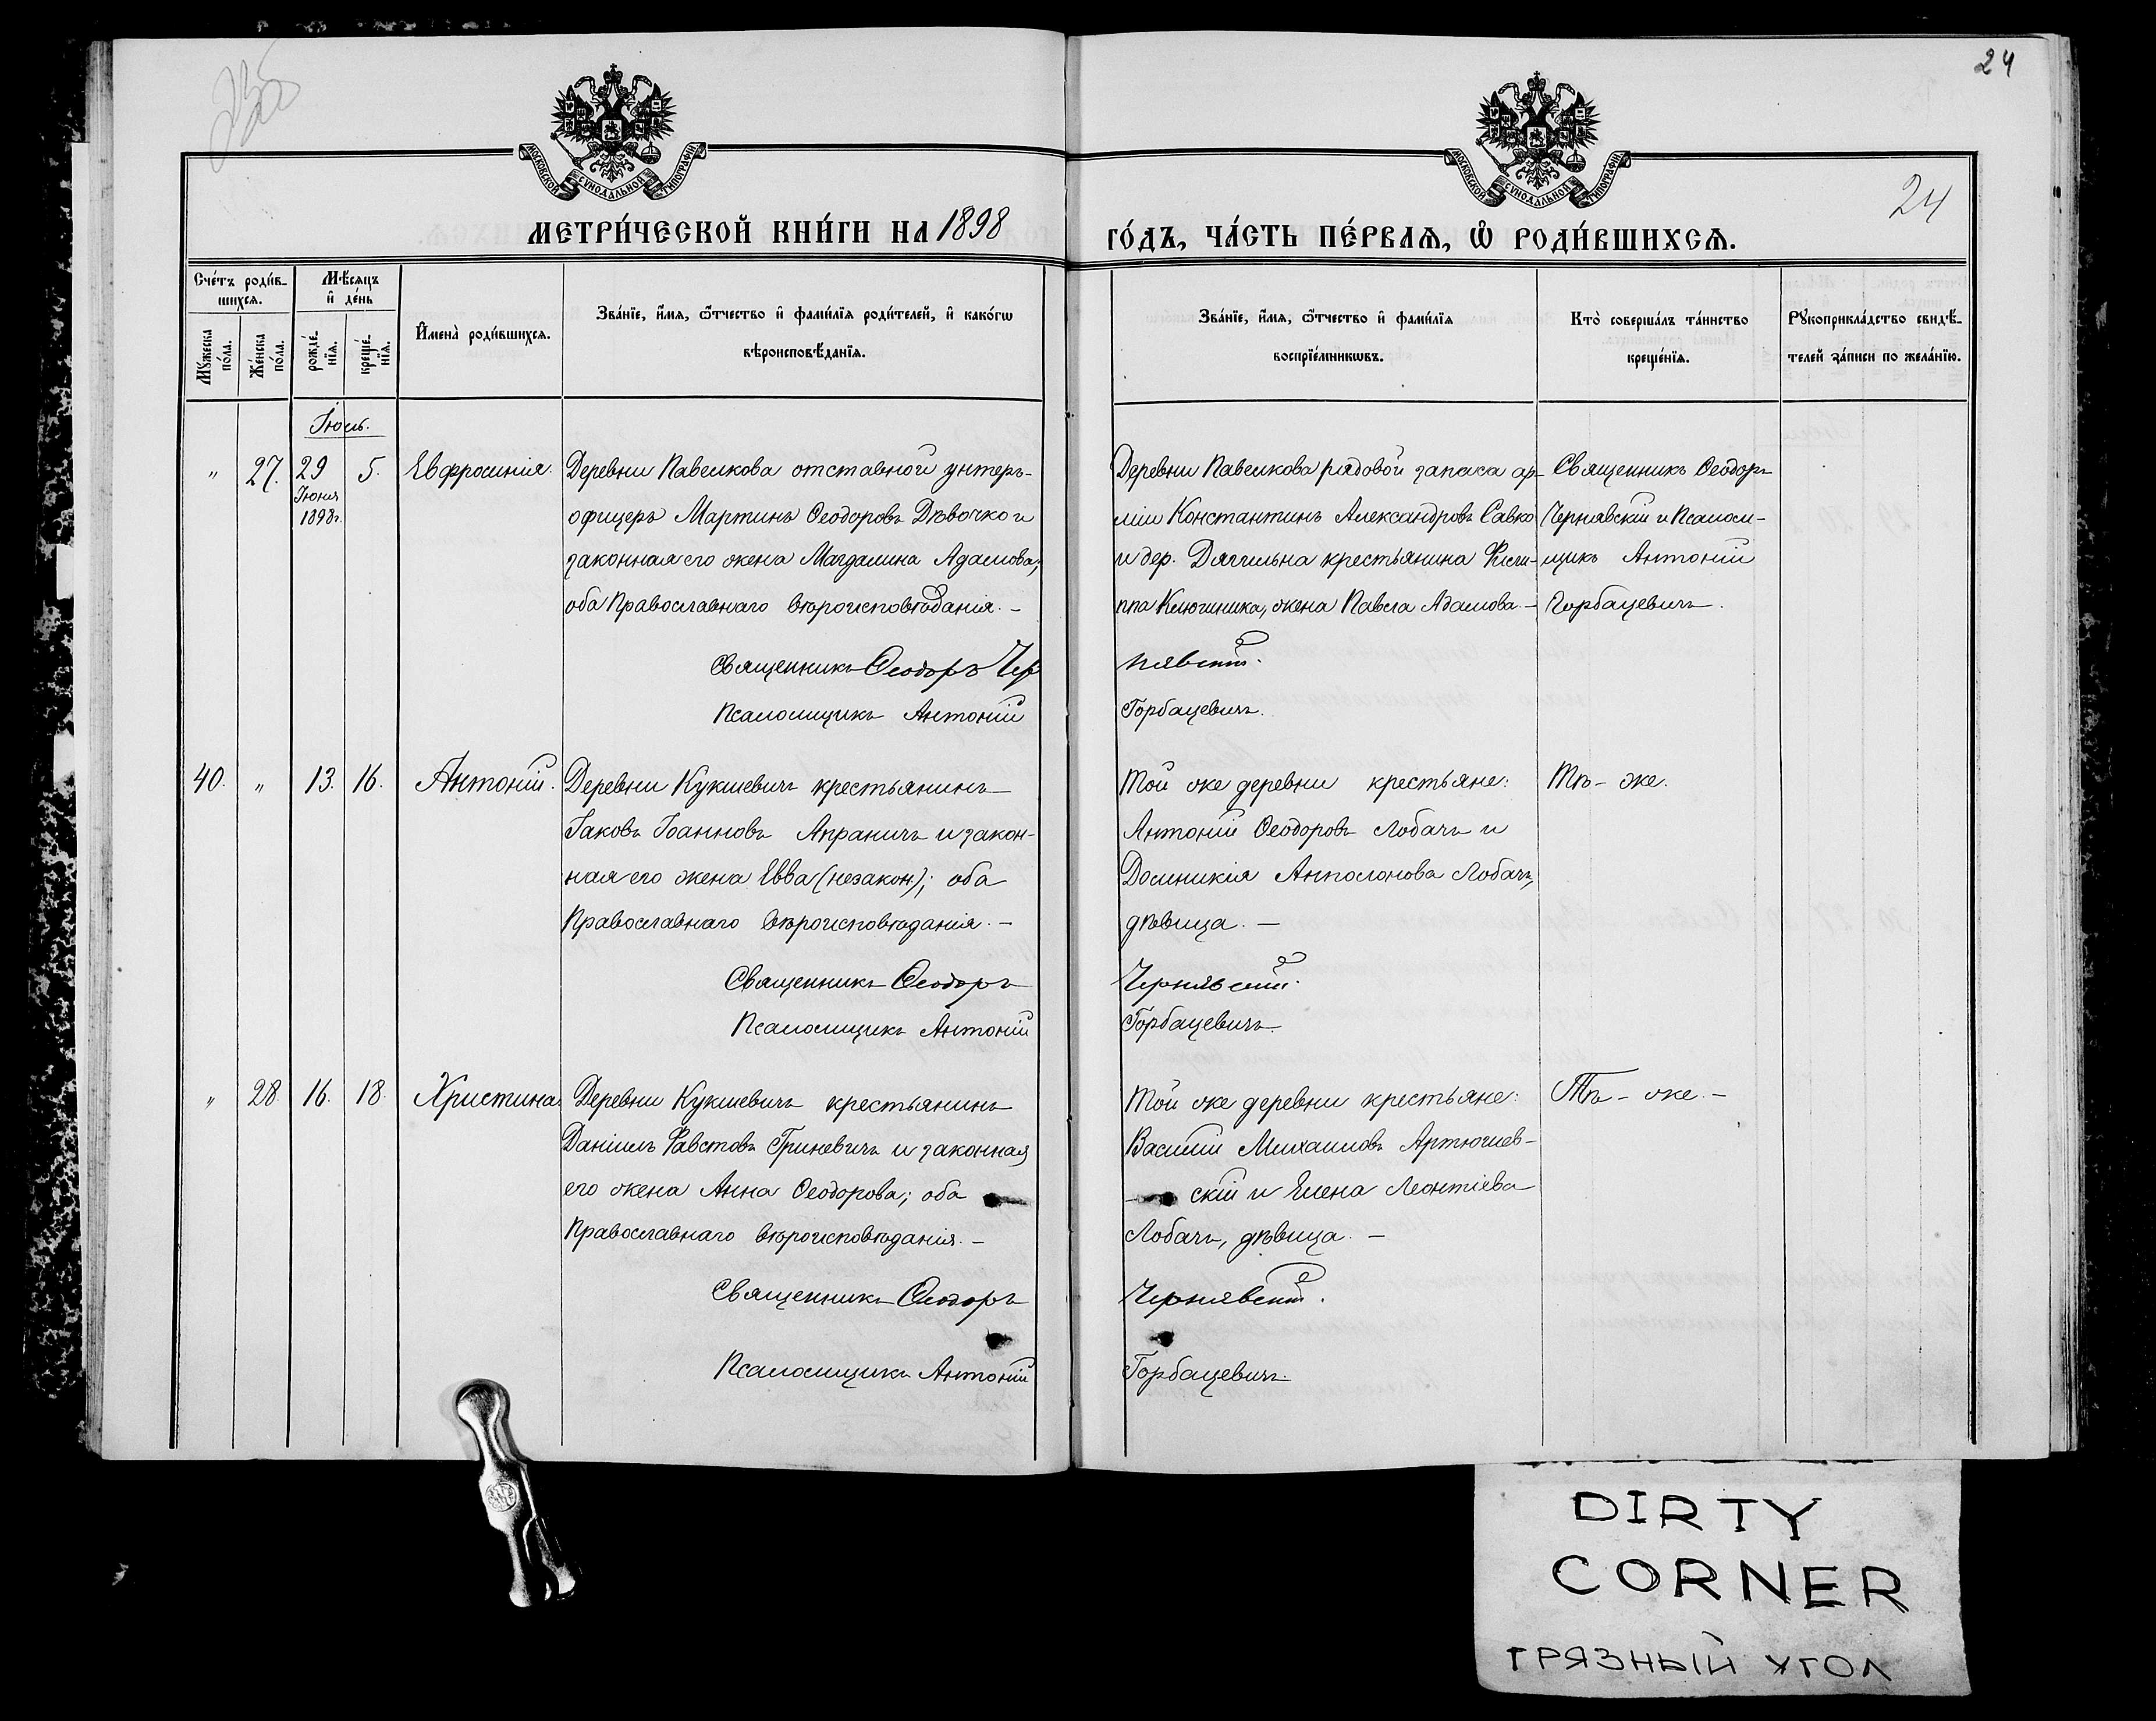 24
МОСКОВСКОЙ СѴНОДАЛЬНОЙ ТИПОГРАФІИ
МОСКОВСКОЙ СѴНОДАЛЬНОЙ ТИПОГРАФІИ
24
МЕТРИ́ЧЕСКОЙ КНИ́ГИ НА 1898
ГО́ДЪ, ЧА́СТЬ ПЕ́РВАѦ, Ѽ РОДИ́ВШИХСѦ.
Сче́тъ роди́в-
шихсѧ.
Мѣ́сѧцъ
и҆ де́нь
Мꙋ́жеска
по́ла.
Же́нска
по́ла.
рожде́-
нїѧ.
креще́-
нїѧ.
И҆мена̀ роди́вшихсѧ.
Зва́нїе, и҆́мѧ, ѻ҆́тчество и҆ фами́лїѧ роди́телей, и҆ како́гѡ
вѣроисповѣ́данїѧ.
Зва́нїе, и҆́мѧ, ѻ҆́тчество и҆ фами́лїѧ
воспрїе́мникѡвъ.
Кто̀ соверша́лъ та́инство
креще́нїѧ.
Рꙋкоприкла́дство свидѣ́-
телей за́писи по жела́нїю.
Іюль.
" 27. 29 5. Евфросинія.
Іюня
1898г.
Деревни Павелкова отставной унтеръ-
офицеръ Мартинъ Ѳеодоровъ Дѣвочко и
законная его жена Магдалина Адамова;
оба Православнаго вѣроисповѣданія. –
Священникъ Ѳеодоръ Чер
Псаломщикъ Антоній
Деревни Павелкова рядовой запаса ар-
міи Константинъ Александровъ Савко
и дер. Дягильна крестьянина Фили-
ппа Ключника, жена Павла Адамова. –
нявскій.
Горбацевичъ.
Священникъ Ѳеодоръ
Чернявскій и Псалом-
щикъ Антоній
Горбацевичъ.
40. " 13. 16. Антоній.
Деревни Кукшевичъ крестьянинъ
Іаковъ Іоанновъ Апраничъ и закон-
ная его жена Евва (незакон.); оба
Православнаго вѣроисповѣданія. –
Священникъ Ѳеодоръ
Псаломщикъ Антоній
Той же деревни крестьяне:
Антоній Ѳеодоровъ Лобачъ и
Доминикія Антонова Лобачъ,
дѣвица. –
Чернявскій.
Горбацевичъ.
Тѣ – же.
" 28. 16. 18. Христина.
Деревни Кукшевичъ крестьянинъ
Даніилъ Фавстовъ Гриневичъ и законная
его жена Анна Ѳеодорова; оба
Православнаго вѣроисповѣданія. –
Священникъ Ѳеодоръ
Псаломщикъ Антоній
Той же деревни крестьяне:
Василій Михаиловъ Артюшев-
скій и Елена Леонтіева
Лобачъ, дѣвица. –
Чернявскій.
Горбацевичъ.
Тѣ – же. –
DIRTY
CORNER
ГРЯЗНЫЙ УГОЛ